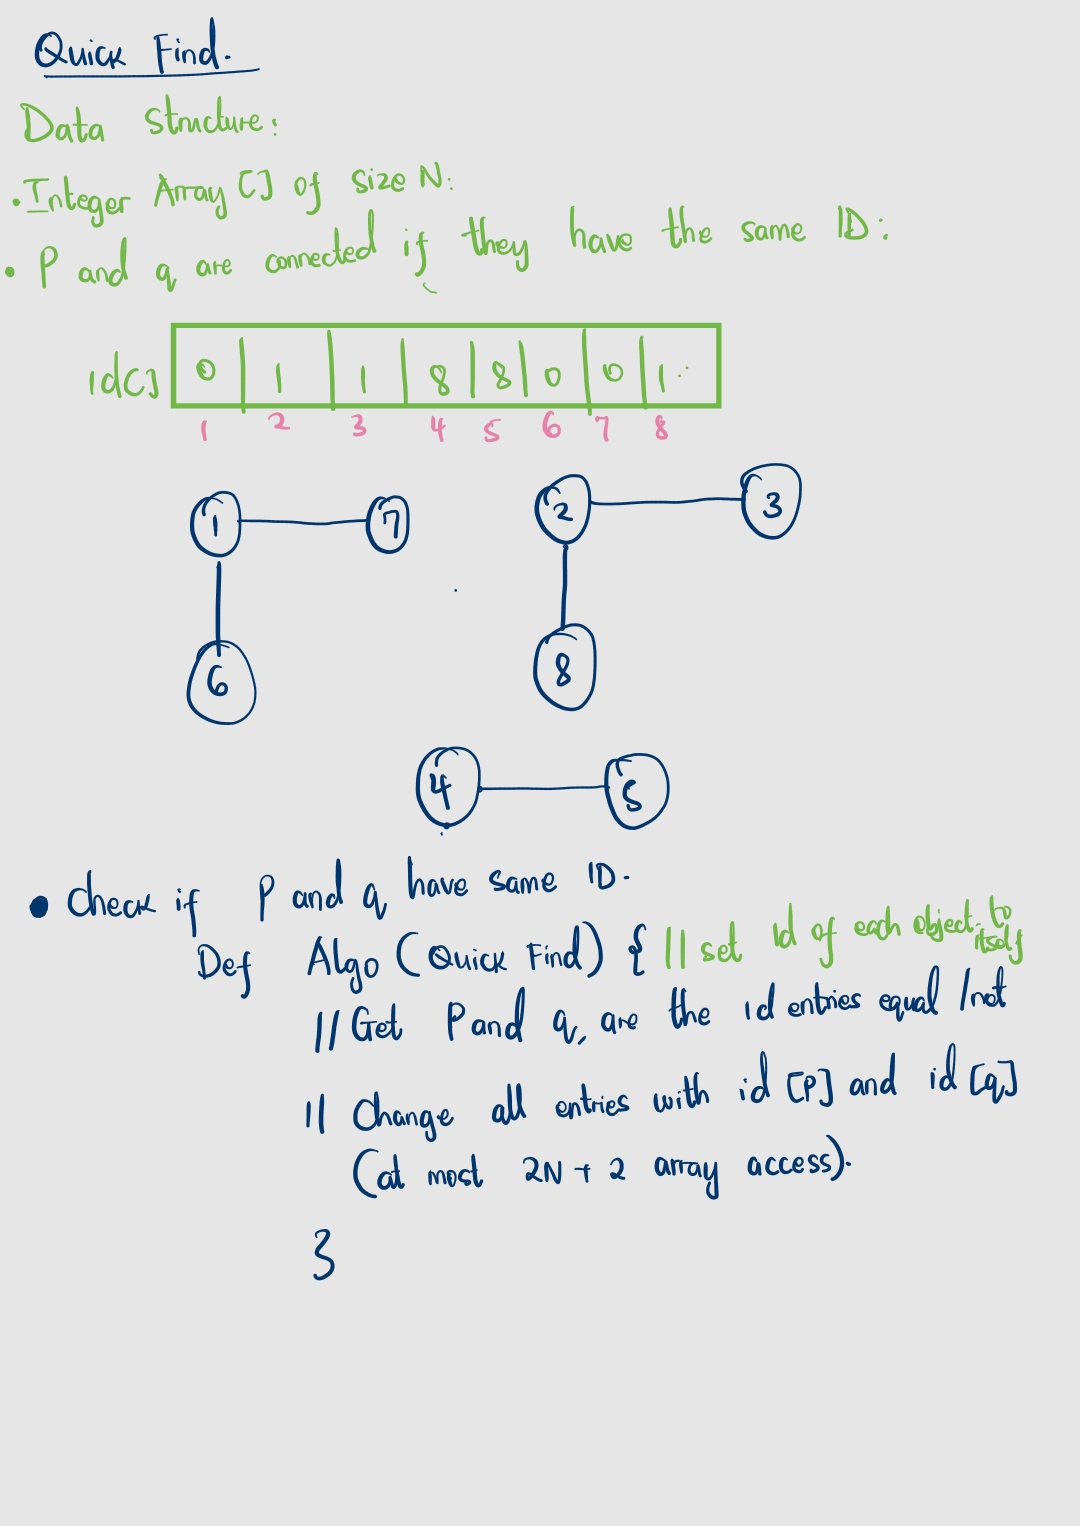 Quick Find.
Data Structure:
• Integer Array [] of size N:
• P and q are connected if they have the same ID:
id[] 0 | 1 | 1 | 8 | 8 | 0 | 0 | 1
1 2 3 4 5 6 7 8
1 7 2 3
6 8
4 5
• Check if P and q have same ID.
Def Algo (Quick Find) { // set id of each object to itself
// Get P and q, are the id entries equal / not
// Change all entries with id [P] and id [q]
(at most 2N + 2 array access).
}